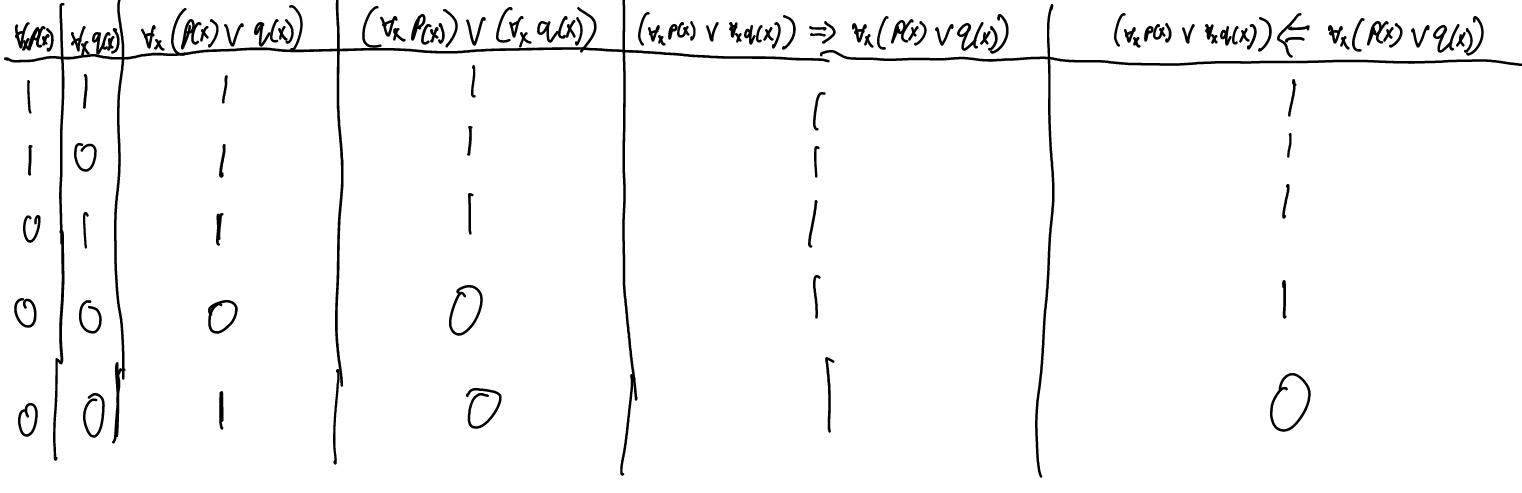 ∀ₓp(x) ∀ₓq(x) ∀ₓ(p(x) ∨ q(x)) (∀ₓ p(x)) ∨ (∀ₓ q(x)) (∀ₓ p(x) ∨ ∀ₓ q(x)) ⇒ ∀ₓ(p(x) ∨ q(x)) (∀ₓ p(x) ∨ ∀ₓ q(x)) ⇐ ∀ₓ(p(x) ∨ q(x))
1 1 1 1 1 1
1 0 1 1 1 1
0 1 1 1 1 1
0 0 0 0 1 1
0 0 1 0 1 0